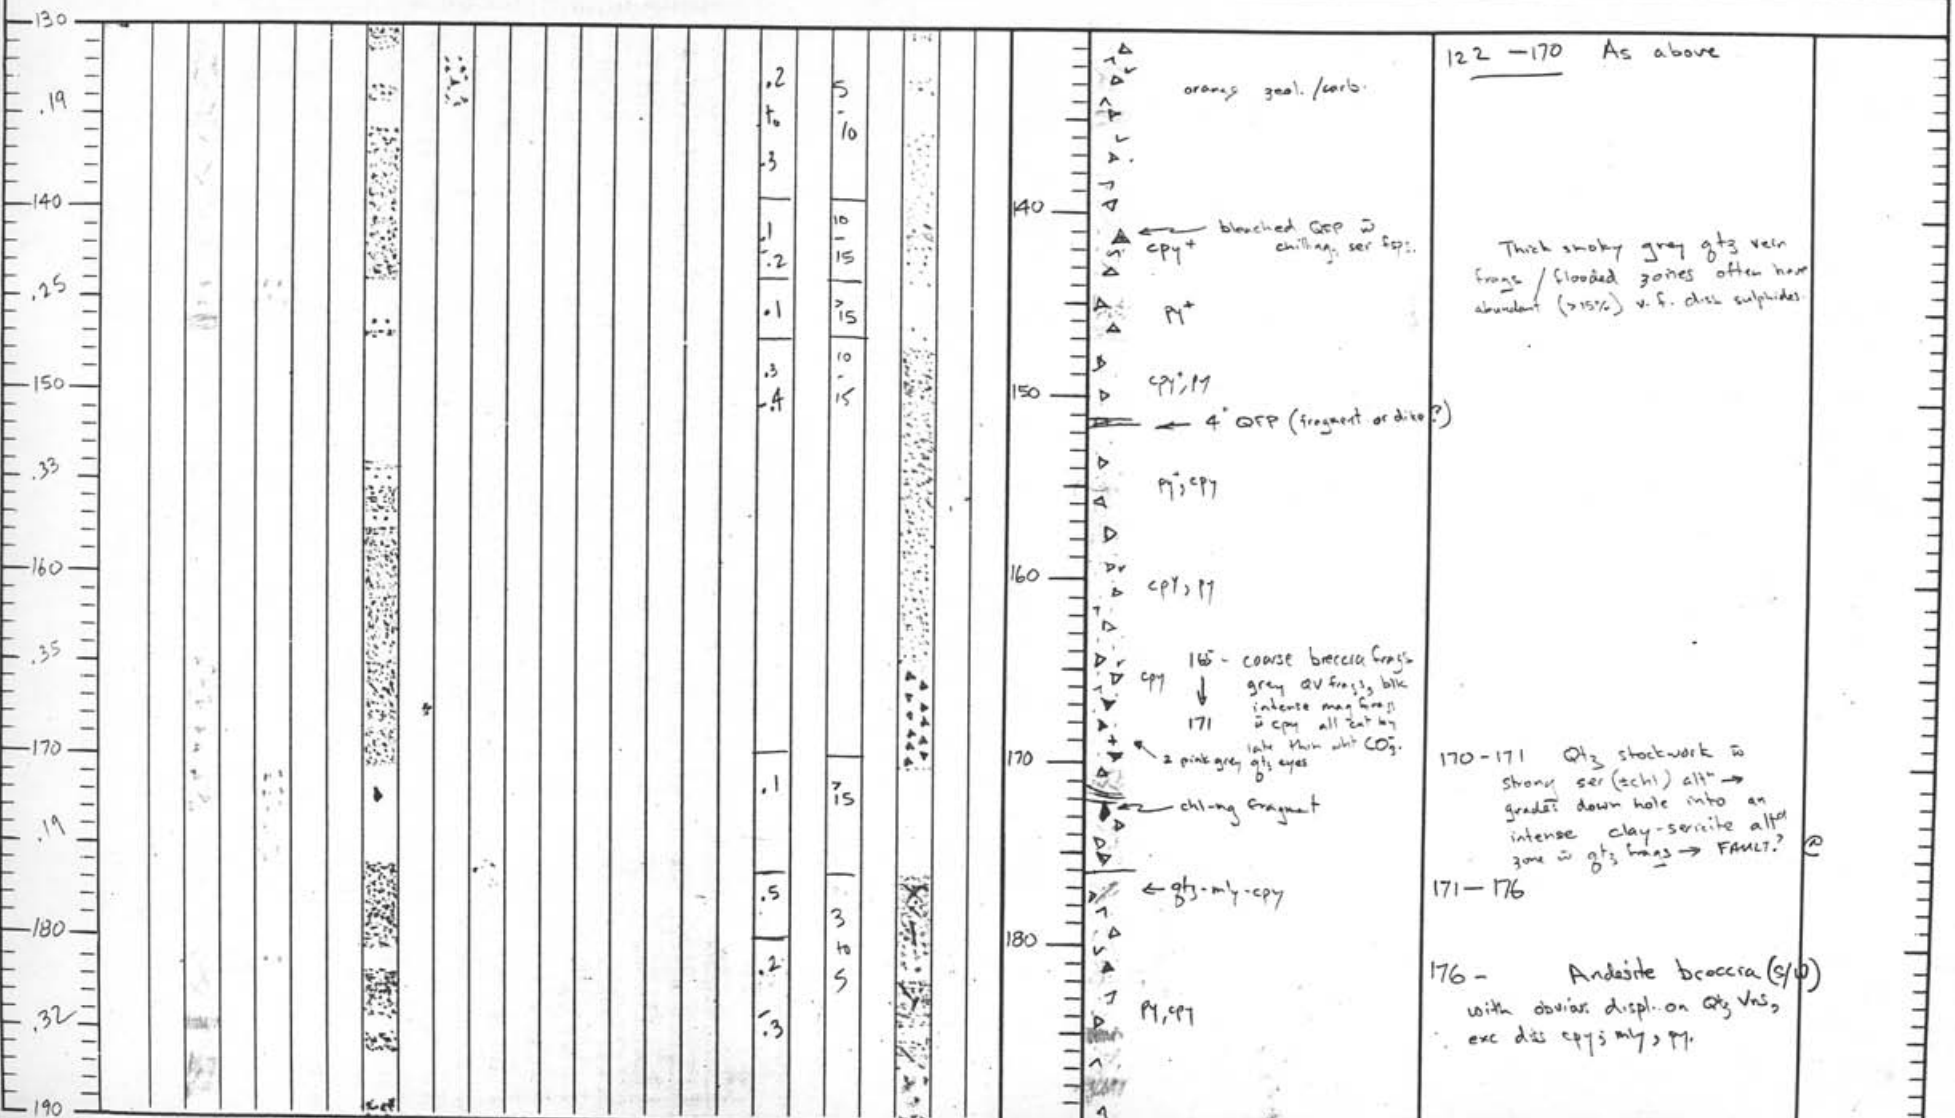 130
.19
140
.25
150
.33
160
.35
170
.19
180
.32
190
.2
to
.3
.1
-.2
.1
.3
-.4
.1
.5
.2
-.3
5
-
10
10
-
15
>
15
10
-
15
>
15
3
to
5
140
150
160
170
180
orange zeol./carb.
bleached QFP w̄
cpy+
chill mg, ser fsps.
py+
cpy+, py
4" QFP (fragment or dike?)
py+, cpy
cpy, py
cpy
165 - coarse breccia frags
grey QV frags, blk
intense mag frags
171
w̄ cpy all cut by
late thin wht CO3=.
2 pink grey qtz eyes
chl-mg fragment
qtz-mly-cpy
py, cpy
122 - 170 As above
Thick smoky grey qtz vein
frags / flooded zones often have
abundant (>15%) v.f. diss sulphides.
170-171 Qtz stockwork w̄
strong ser (±chl) altn →
grades down hole into an
intense clay-sericite altn
zone w̄ qtz frags → FAULT?
171-176
176 - Andesite breccia (s/w)
with obvious displ. on Qtz Vns,
exc diss cpy; mly, py.